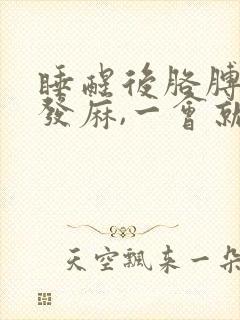 睡醒後胳膊
發麻,一會就
天空飄来一朵